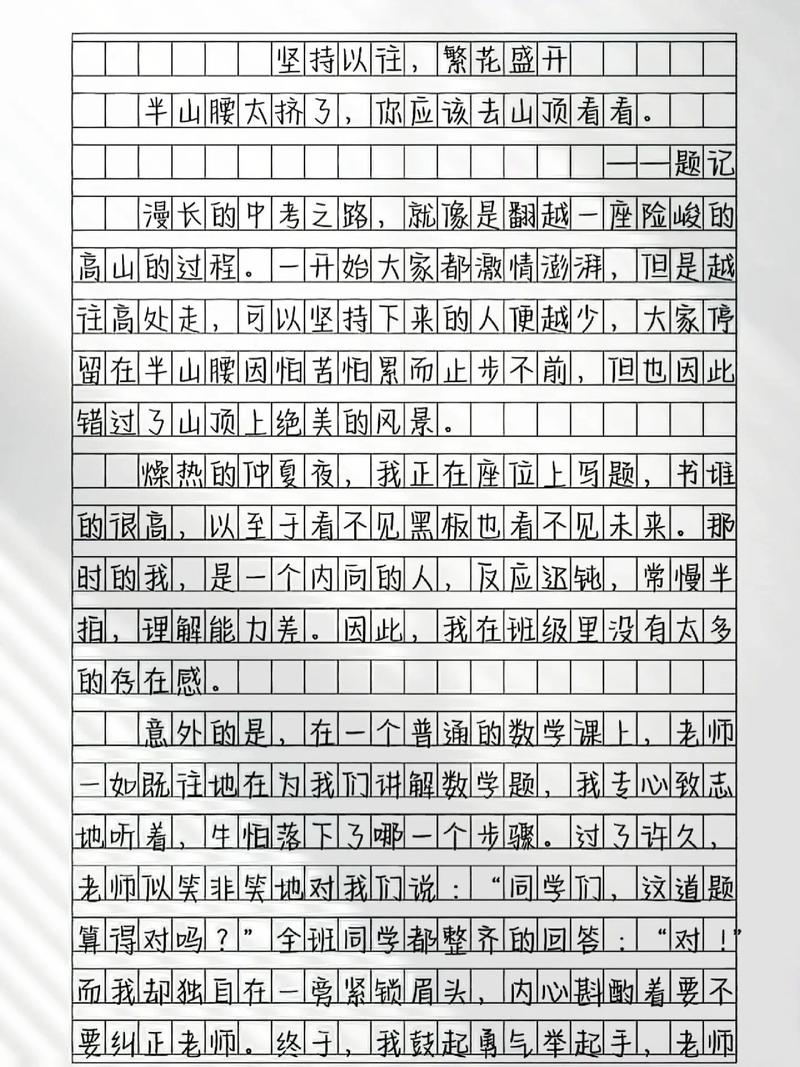 坚持以往，繁花盛开
半山腰太挤了，你应该去山顶看看。
——题记
漫长的中考之路，就像是翻越一座险峻的
高山的过程。一开始大家都激情澎湃，但是越
往高处走，可以坚持下来的人便越少，大家停
留在半山腰因怕苦怕累而止步不前，但也因此
错过了山顶上绝美的风景。
燥热的仲夏夜，我正在座位上写题，书堆
的很高，以至于看不见黑板也看不见未来。那
时的我，是一个内向的人，反应迟钝，常慢半
拍，理解能力差。因此，我在班级里没有太多
的存在感。
意外的是，在一个普通的数学课上，老师
一如既往地在为我们讲解数学题，我专心致志
地听着，生怕落下了哪一个步骤。过了许久，
老师似笑非笑地对我们说：“同学们，这道题
算得对吗？”全班同学都整齐的回答：“对！”
而我却独自在一旁紧锁眉头，内心斟酌着要不
要纠正老师。终于，我鼓起勇气举起手，老师